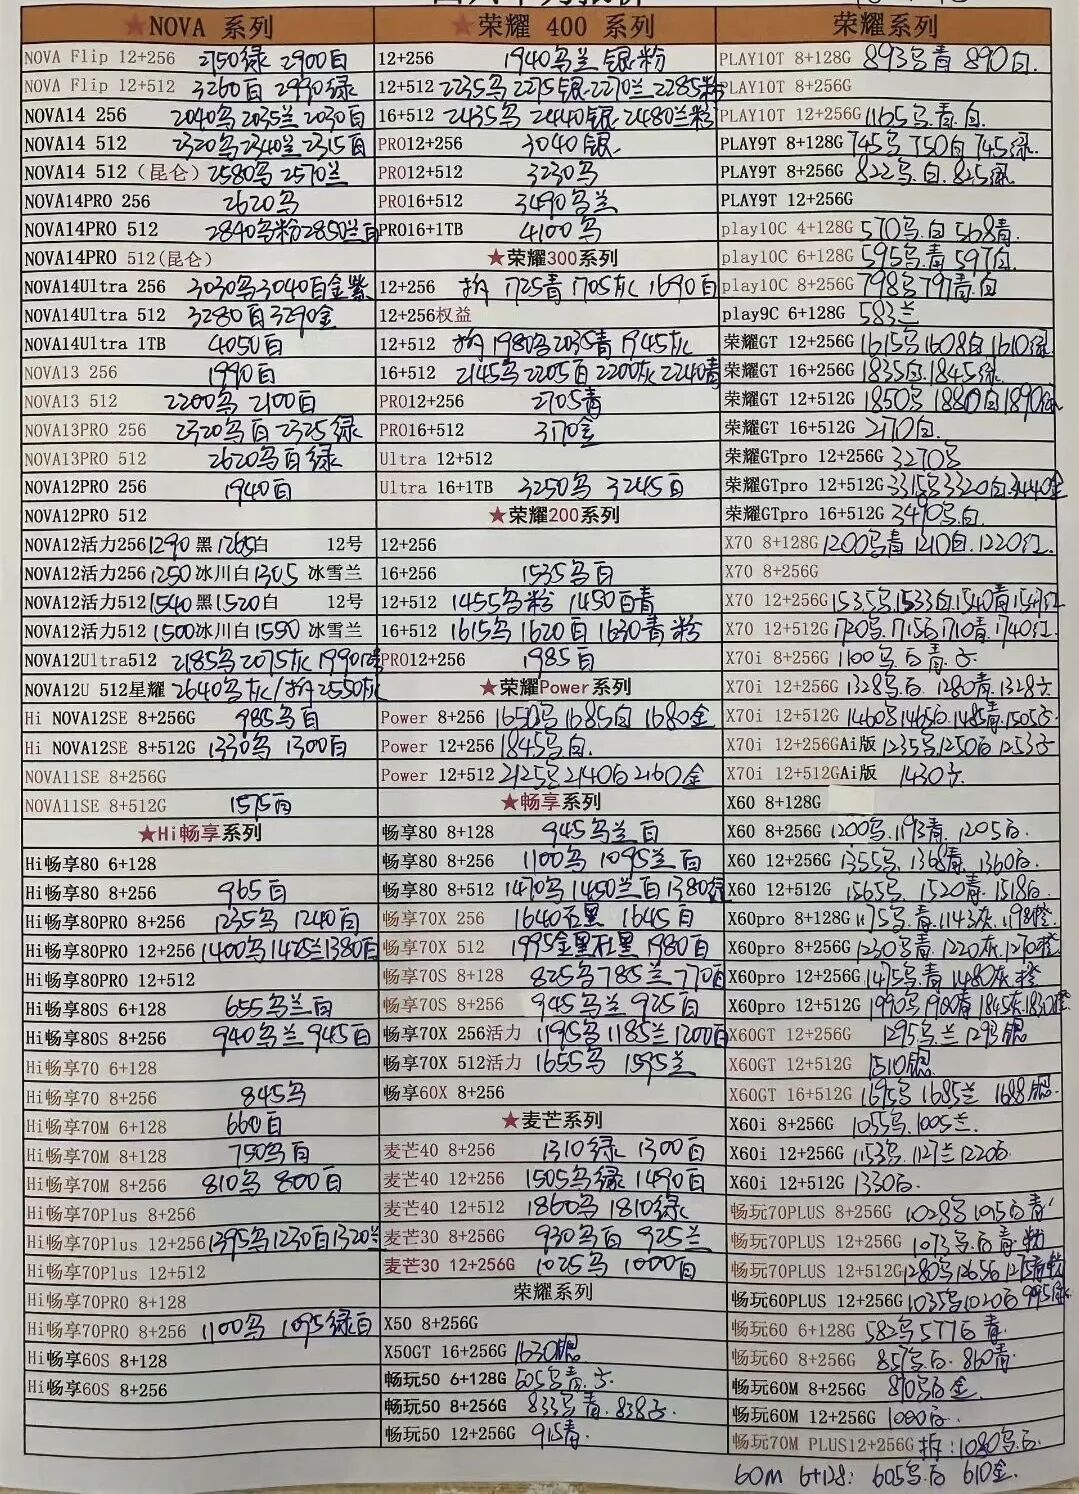 ★NOVA 系列
NOVA Flip 12+256 2750绿 2900白
NOVA Flip 12+512 3260白 2990绿
NOVA14 256 2040乌 2035兰 2030白
NOVA14 512 2320乌 2340兰 2315白
NOVA14 512（昆仑）2580乌 2570兰
NOVA14PRO 256 2620乌
NOVA14PRO 512 2840乌粉 2850兰白
NOVA14PRO 512(昆仑)
NOVA14Ultra 256 3030乌 3040白金紫
NOVA14Ultra 512 3280白 3290金
NOVA14Ultra 1TB 4050白
NOVA13 256 1990白
NOVA13 512 2200乌 2100白
NOVA13PRO 256 2320乌白 2325绿
NOVA13PRO 512 2620乌白绿
NOVA12PRO 256 1940白
NOVA12PRO 512
NOVA12活力256 1290 黑 1265白 12号
NOVA12活力256 1250 冰川白 1305 冰雪兰
NOVA12活力512 1540 黑 1520白 12号
NOVA12活力512 1500冰川白 1550 冰雪兰
NOVA12Ultra512 2185乌 2075灰 1990
NOVA12U 512星耀 2640乌灰/拆2550灰
Hi NOVA12SE 8+256G 985乌白
Hi NOVA12SE 8+512G 1330乌 1300白
NOVA11SE 8+256G
NOVA11SE 8+512G 1575白
★Hi畅享系列
Hi畅享80 6+128
Hi畅享80 8+256 965白
Hi畅享80PRO 8+256 1235乌 1240白
Hi畅享80PRO 12+256 1400乌 1425兰 1380白
Hi畅享80PRO 12+512
Hi畅享80S 6+128 655乌兰白
Hi畅享80S 8+256 940乌兰 945白
Hi畅享70 6+128
Hi畅享70 8+256 845乌
Hi畅享70M 6+128 660白
Hi畅享70M 8+128 750乌白
Hi畅享70M 8+256 810乌 800白
Hi畅享70Plus 8+256
Hi畅享70Plus 12+256 1295乌 1230白 1320兰
Hi畅享70Plus 12+512
Hi畅享70PRO 8+128
Hi畅享70PRO 8+256 1100乌 1095绿白
Hi畅享60S 8+128
Hi畅享60S 8+256
★荣耀 400 系列
12+256 1940乌兰银粉
12+512 2235乌 2275银 2270兰 2285粉
16+512 2435乌 2440银 2480兰粉
PRO12+256 3040银
PRO12+512 3230乌
PRO16+512 3490乌兰
PRO16+1TB 4100乌
★荣耀300系列
12+256 拆 1725青 1705灰 1690白
12+256权益
12+512 拆 1980乌 2035青 1945灰
16+512 2145乌 2205白 2200灰 2240青
PRO12+256 2705青
PRO16+512 3170金
Ultra 12+512
Ultra 16+1TB 3250乌 3245白
★荣耀200系列
12+256
16+256 1535乌白
12+512 1455乌粉 1450白青
16+512 1615乌 1620白 1630青粉
PRO12+256 1985白
★荣耀Power系列
Power 8+256 1650乌 1685白 1680金
Power 12+256 1845乌白
Power 12+512 2125乌 2140白 2160金
★畅享系列
畅享80 8+128 945乌兰白
畅享80 8+256 1100乌 1095兰白
畅享80 8+512 1470乌 1450兰白 1380
畅享70X 256 1640石墨 1645白
畅享70X 512 1995金黑 1980白
畅享70S 8+128 825乌 785兰 770白
畅享70S 8+256 945乌兰 925白
畅享70X 256活力 1195乌 1185兰 1200白
畅享70X 512活力 1655乌 1595兰
畅享60X 8+256
★麦芒系列
麦芒40 8+256 1310绿 1300白
麦芒40 12+256 1505乌绿 1490白
麦芒40 12+512 1860乌 1810绿
麦芒30 8+256G 930乌白 925兰
麦芒30 12+256G 1025乌 1000白
荣耀系列
X50 8+256G
X50GT 16+256G 1630银
畅玩50 6+128G 605乌青.
畅玩50 8+256G 833乌青. 838
畅玩50 12+256G 915青.
荣耀系列
PLAY10T 8+128G 893乌青 890白.
PLAY10T 8+256G
PLAY10T 12+256G 1165乌.青.白.
PLAY9T 8+128G 745乌 750白 745绿
PLAY9T 8+256G 822乌.白.825绿
PLAY9T 12+256G
play10C 4+128G 570乌.白 568青.
play10C 6+128G 595乌.青 597白
play10C 8+256G 798乌 797青.白
play9C 6+128G 583兰
荣耀GT 12+256G 1615乌 1608白 1610绿
荣耀GT 16+256G 1835白.1845绿
荣耀GT 12+512G 1850乌 1880白 1890绿
荣耀GT 16+512G 2170白.
荣耀GTpro 12+256G 3270乌
荣耀GTpro 12+512G 3315乌 3320白.3440金
荣耀GTpro 16+512G 3490乌.白.
X70 8+128G 1200乌青 1210白.1220红.
X70 8+256G
X70 12+256G 1535乌.1533白.1540青 1547红
X70 12+512G 1720乌.1715白 1710青.1740红.
X70i 8+256G 1100乌.白 青.
X70i 12+256G 1328乌.白. 1280青.1328
X70i 12+512G 1460乌 1465白.1485青.1505
X70i 12+256GAi版 1235乌.1250白 1253
X70i 12+512GAi版 1430
X60 8+128G
X60 8+256G 1200乌.1193青. 1205白.
X60 12+256G 1355乌.1368青. 1360白.
X60 12+512G 1565乌. 1520青. 1518白.
X60pro 8+128G 1175乌.青.1143灰.1198橙
X60pro 8+256G 1230乌青 1220灰.1270橙
X60pro 12+256G 1475乌.青 1480灰橙
X60pro 12+512G 1990乌 1900青 1845灰 1830橙
X60GT 12+256G 1295乌.兰 1293银
X60GT 12+512G 1510银.
X60GT 16+512G 1695乌 1685兰 1688银.
X60i 8+256G 1055乌.1005兰.
X60i 12+256G 1153乌.1127兰 1220白.
X60i 12+512G 1330白.
畅玩70PLUS 8+256G 1028乌 1015白青
畅玩70PLUS 12+256G 1073乌.白青.粉
畅玩70PLUS 12+512G 1280乌 1265白 1275青粉
畅玩60PLUS 12+256G 1035乌 1020白 995绿
畅玩60 6+128G 582乌 577白 青.
畅玩60 8+256G 857乌.白. 860青.
畅玩60M 8+256G 870乌白金.
畅玩60M 12+256G 1000白.
畅玩70M PLUS12+256G 拆:1080乌.白
60M 6+128: 605乌.白 610金.